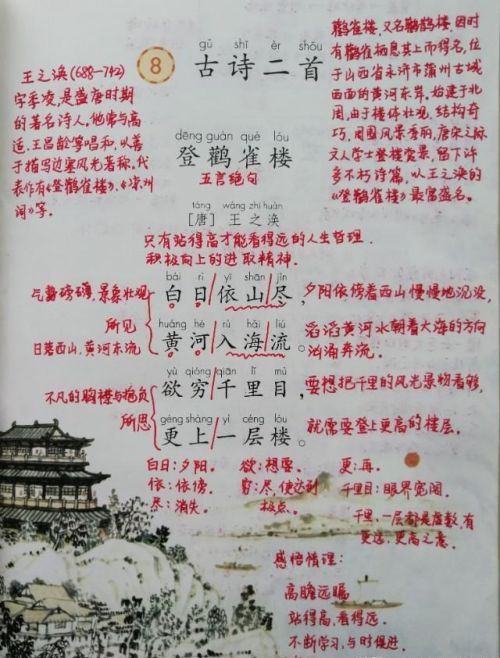 王之涣(688—742)
字季凌,是盛唐时期
的著名诗人,他常与高
适,王昌龄等唱和,以善
于描写边塞风光著称,代
表作有《登鹳雀楼》、《凉州
词》等。
8
gǔ shī èr shǒu
古诗二首
dēng guàn què lóu
登鹳雀楼
五言绝句
táng wáng zhī huàn
[唐] 王之涣
鹳雀楼,又名鹳鹊楼,因时
有鹳雀栖息其上而得名,位
于山西省永济市蒲州古城
西面的黄河东岸,始建于北
周,由于楼体壮观,结构奇
巧,周围风景秀丽,唐宋之际
文人学士登楼赏景,留下许
多不朽诗篇,以王之涣的
《登鹳雀楼》最富盛名。
只有站得高才能看得远的人生哲理.
积极向上的进取精神.
bái rì yī shān jìn
气势磅礴,景象壮观 白日/依山/尽, 夕阳依傍着西山慢慢地沉没,
所见
huáng hé rù hǎi liú
日落西山,黄河东流 黄河/入海/流。 滔滔黄河水朝着大海的方向
汹涌奔流。
yù qióng qiān lǐ mù
不凡的胸襟与抱负 欲穷/千里目, 要想把千里的风光景物看够,
所思
gèng shàng yì céng lóu
更上/一层楼。 就需要登上更高的楼层.
白日:夕阳. 欲:想要. 更:再.
依:依傍. 穷:尽,使达到 千里目:眼界宽阔.
尽:消失. 极点. 千里、一层都是虚数,有
更远、更高之意.
感悟情理:
高瞻远瞩
站得高,看得远.
不断学习,与时俱进.